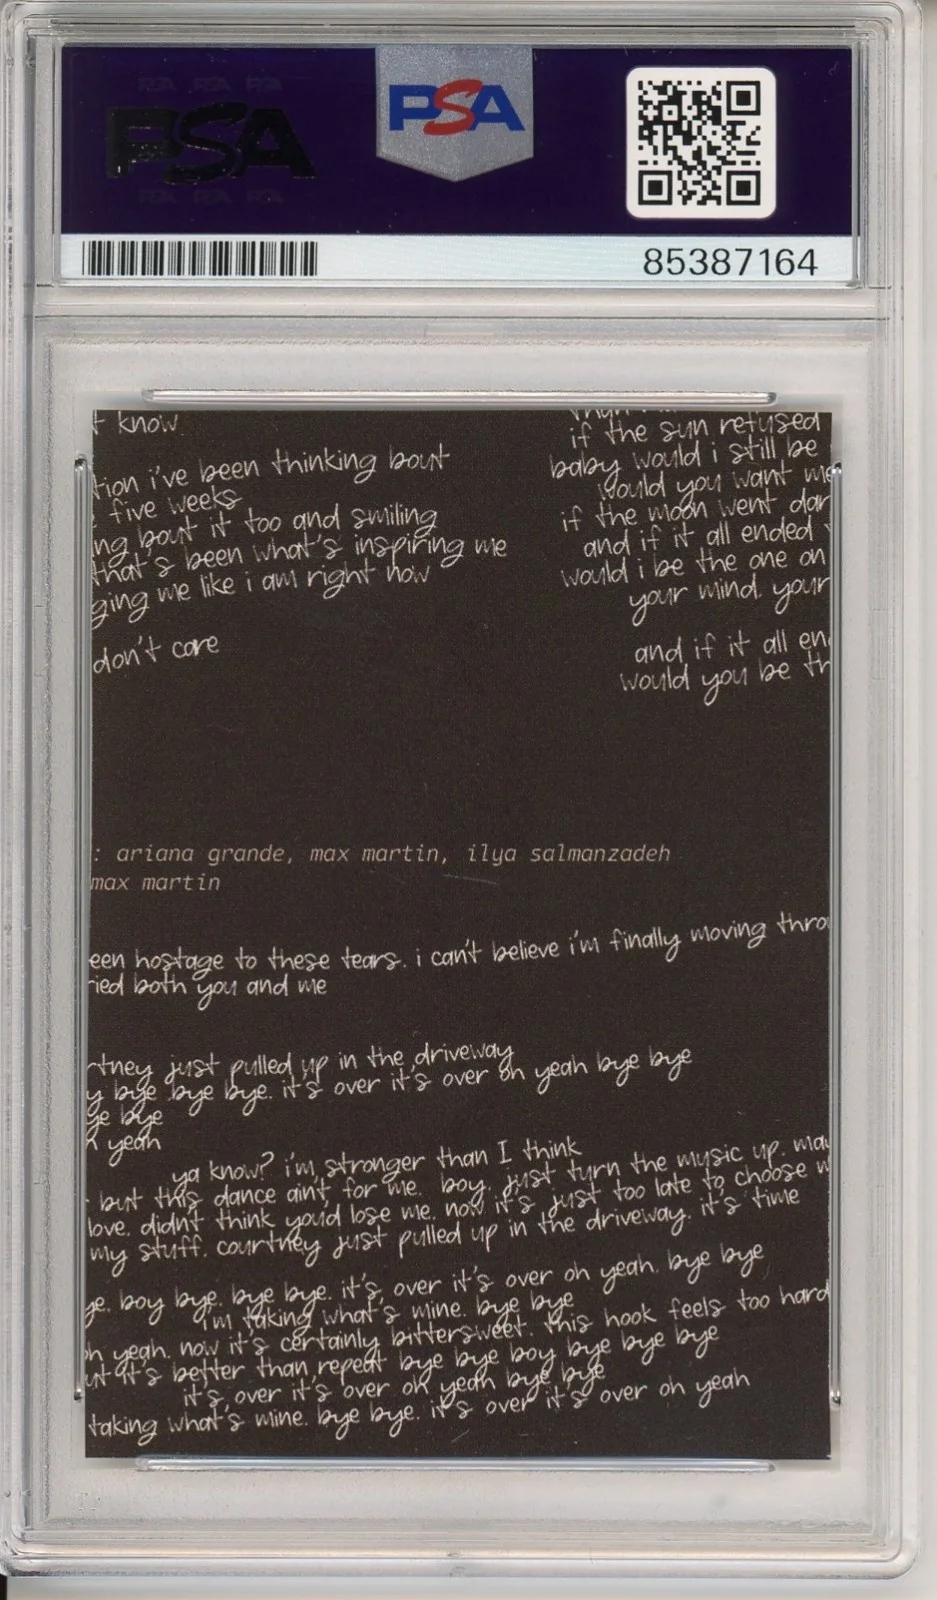 PSA PSA PSA
PSA
PSA PSA PSA
PSA
85387164
t know
tion i've been thinking bout
five weeks
ng bout it too and smiling
that's been what's inspiring me
ging me like i am right now
don't care
if the sun refused
baby would i still be
would you want me
if the moon went dar
and if it all ended
would i be the one on
your mind. your
and if it all en
would you be th
: ariana grande, max martin, ilya salmanzadeh
max martin
een hostage to these tears. i can't believe i'm finally moving thro
ried both you and me
rtney just pulled up in the driveway
y bye bye bye. it's over it's over oh yeah bye bye
ye bye
h yeah
ya know? i'm stronger than I think
but this dance ain't for me. boy, just turn the music up. may
love. didnt think you'd lose me. now it's just too late to choose m
my stuff. courtney just pulled up in the driveway. it's time
ye. boy bye. bye bye. it's over it's over oh yeah. bye bye
i'm taking what's mine. bye bye
oh yeah. now it's certainly bittersweet. this hook feels too hard
ut it's better than repeat bye bye boy bye bye bye
it's over it's over oh yeah bye bye
taking what's mine. bye bye. it's over it's over oh yeah